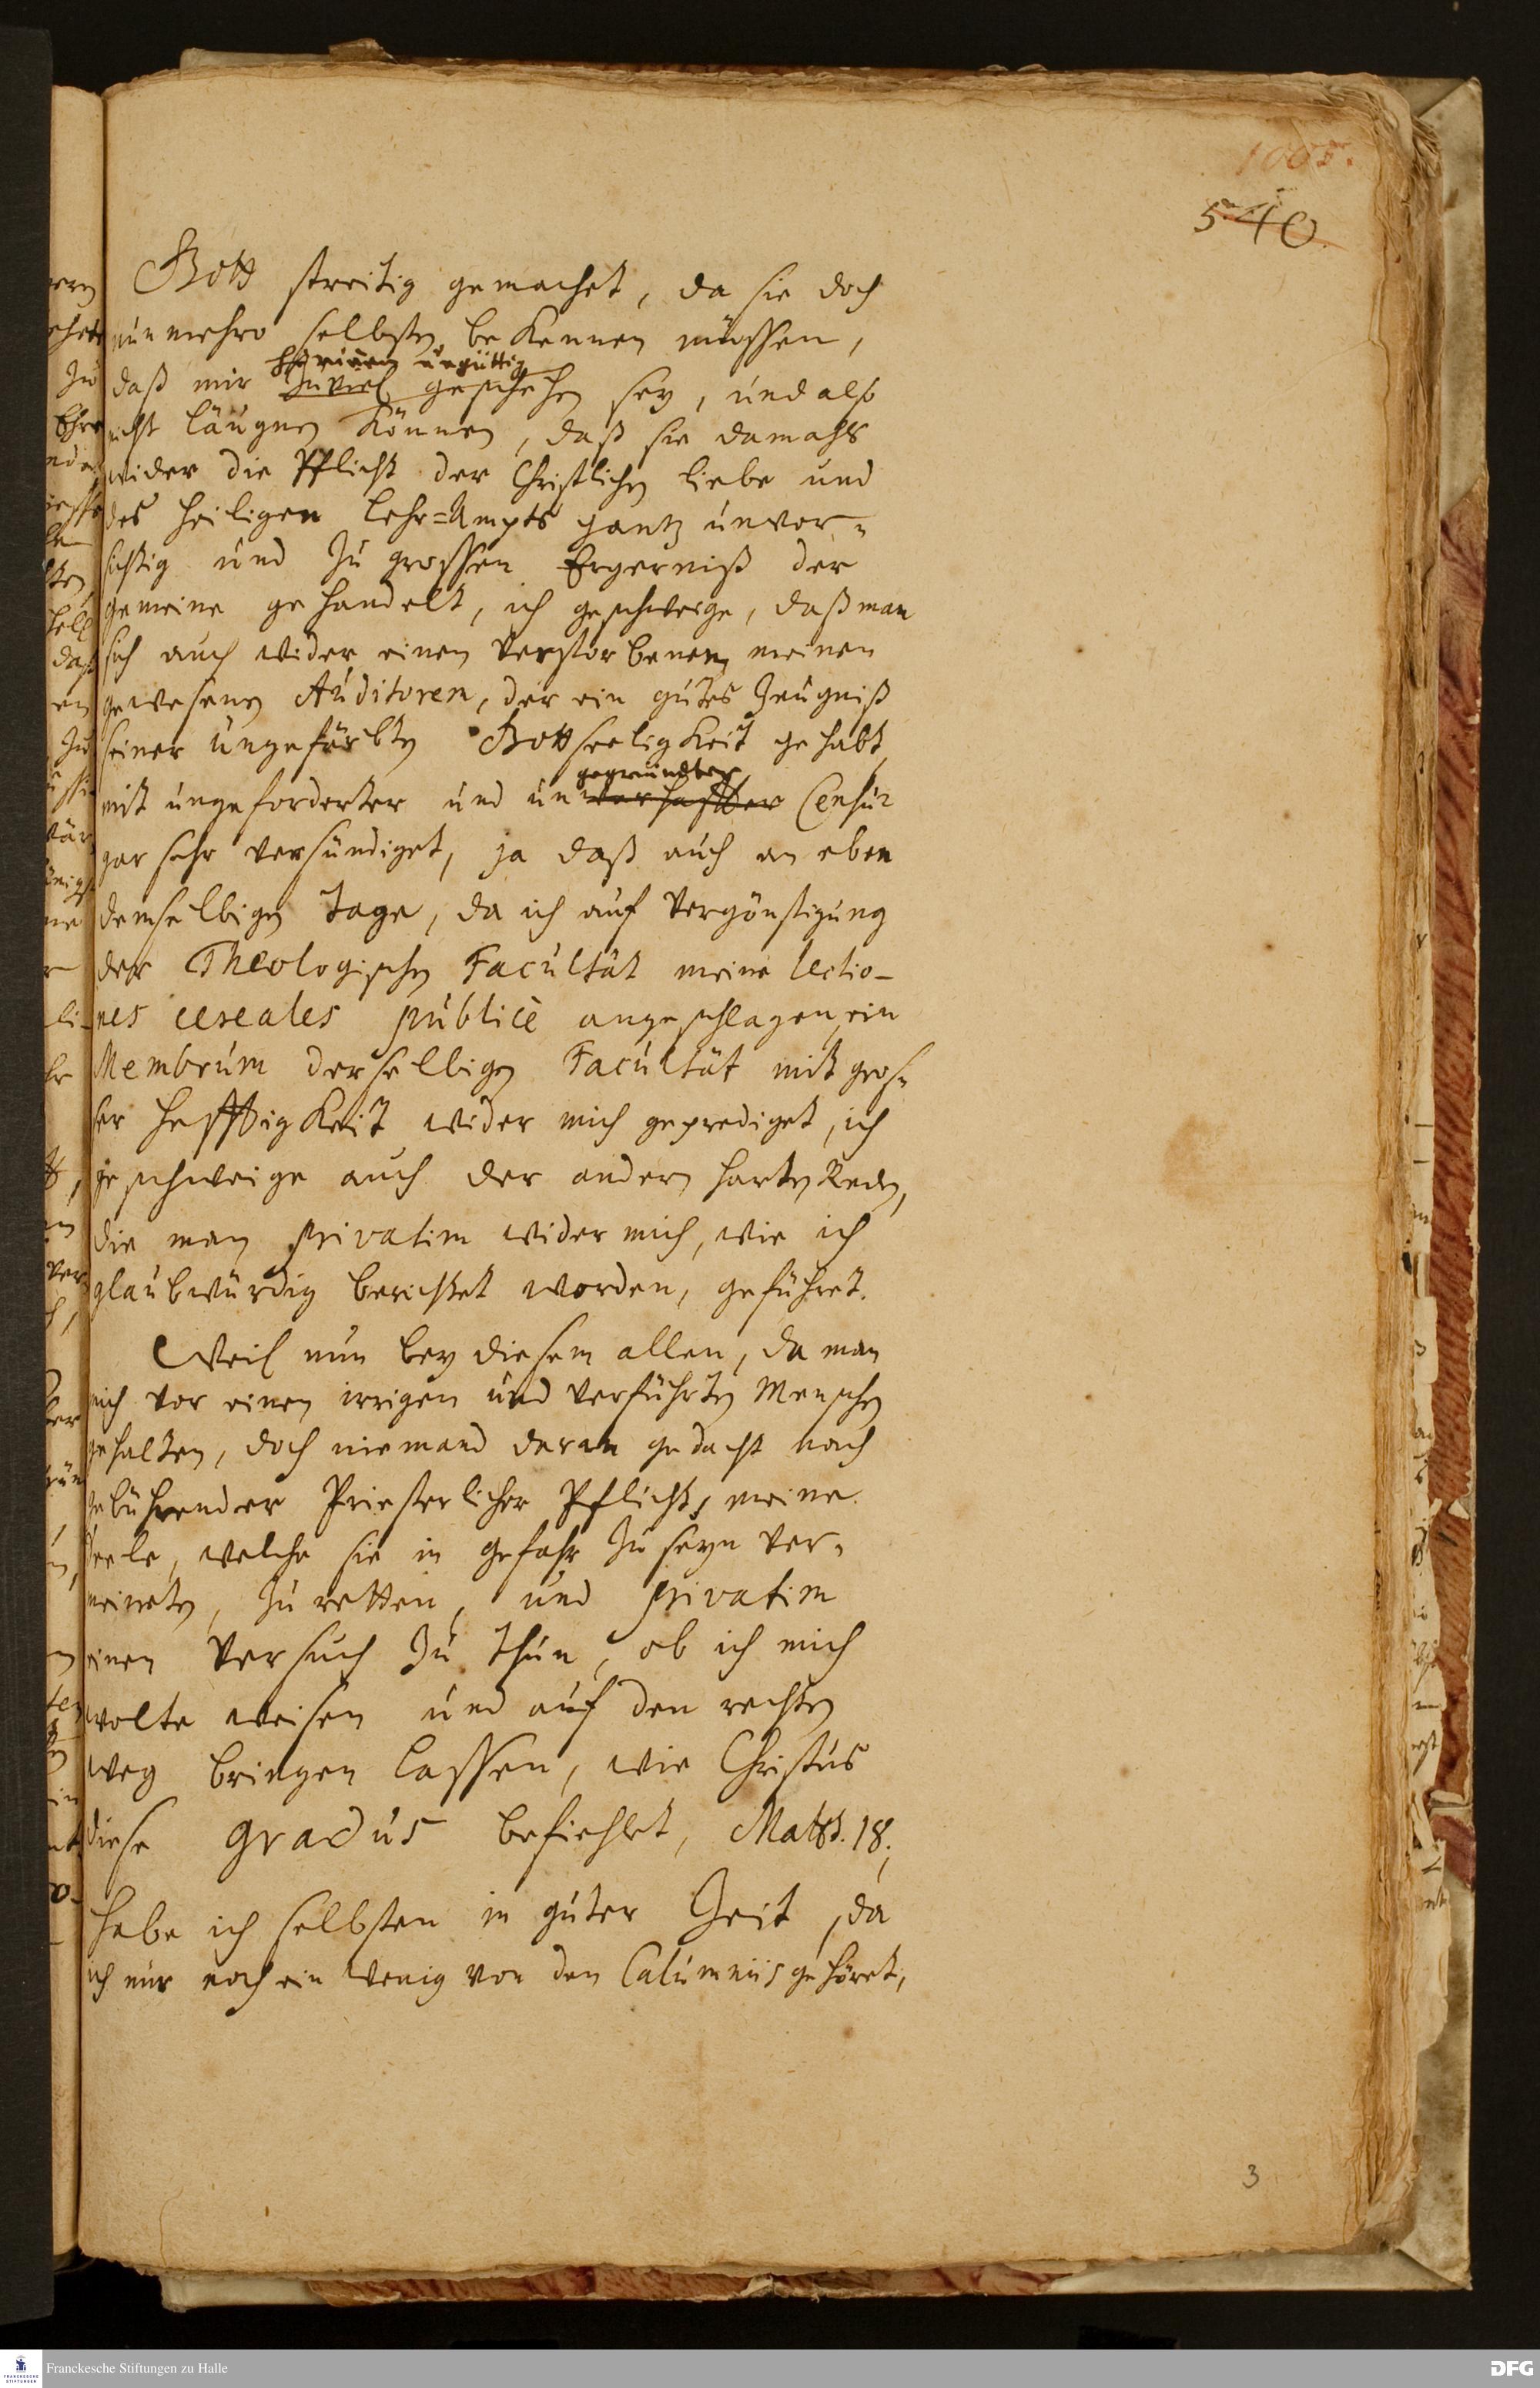 1005.
540.
Gott streitig gemachet, da sie doch
nunmehro selbsten bekennen müssen,
hierinnen ungüttig
daß mir zu viel geschehen sey, und also
nicht läugnen können, daß sie damahls
wider die Pflicht der Christlichen liebe und
des heiligen Lehr=Ampts gantz unvor=
sichtig und zu grossen Ergerniß der
gemeine gehandelt, ich geschweige, daß man
sich auch wider einen Verstorbenen meinen
gewesenen Auditorem, der ein gutes Zeugniß
seiner ungefärbten Gottseeligkeit gehabt,
gegründter
mit ungeforderter und unverhaffter Censur
gar sehr versündiget, ja daß auch an eben
demselbigen Tage, da ich auf Vergönstigung
der Theologischen Facultät meine lectio-
nes cereales publicè angeschlagen, ein
Membrum derselbigen Facultät mit gros=
ser Hefftigkeit wider mich geprediget, ich
geschweige auch der andern harten Reden,
die man privatim wider mich, wie ich
glaubwürdig berichtet worden, geführet.
Weil nun bey diesem allen, da man
mich vor einen irrigen und verführten Menschen
gehalten, doch niemand daran gedacht nach
gebührender Priesterlicher Pflicht, meine
Seele, welche sie in gefahr zu seyn ver=
meineten, zu retten, und privatim
einen Versuch zu thun, ob ich mich
wolte weisen und auf den rechten
weg bringen lassen, wie Christus
diese gradus befiehlet, Matth. 18.,
habe ich selbsten in guter Zeit, da
ich nur noch ein wenig von den Calumniis gehöret,
3
Franckesche Stiftungen zu Halle
DFG